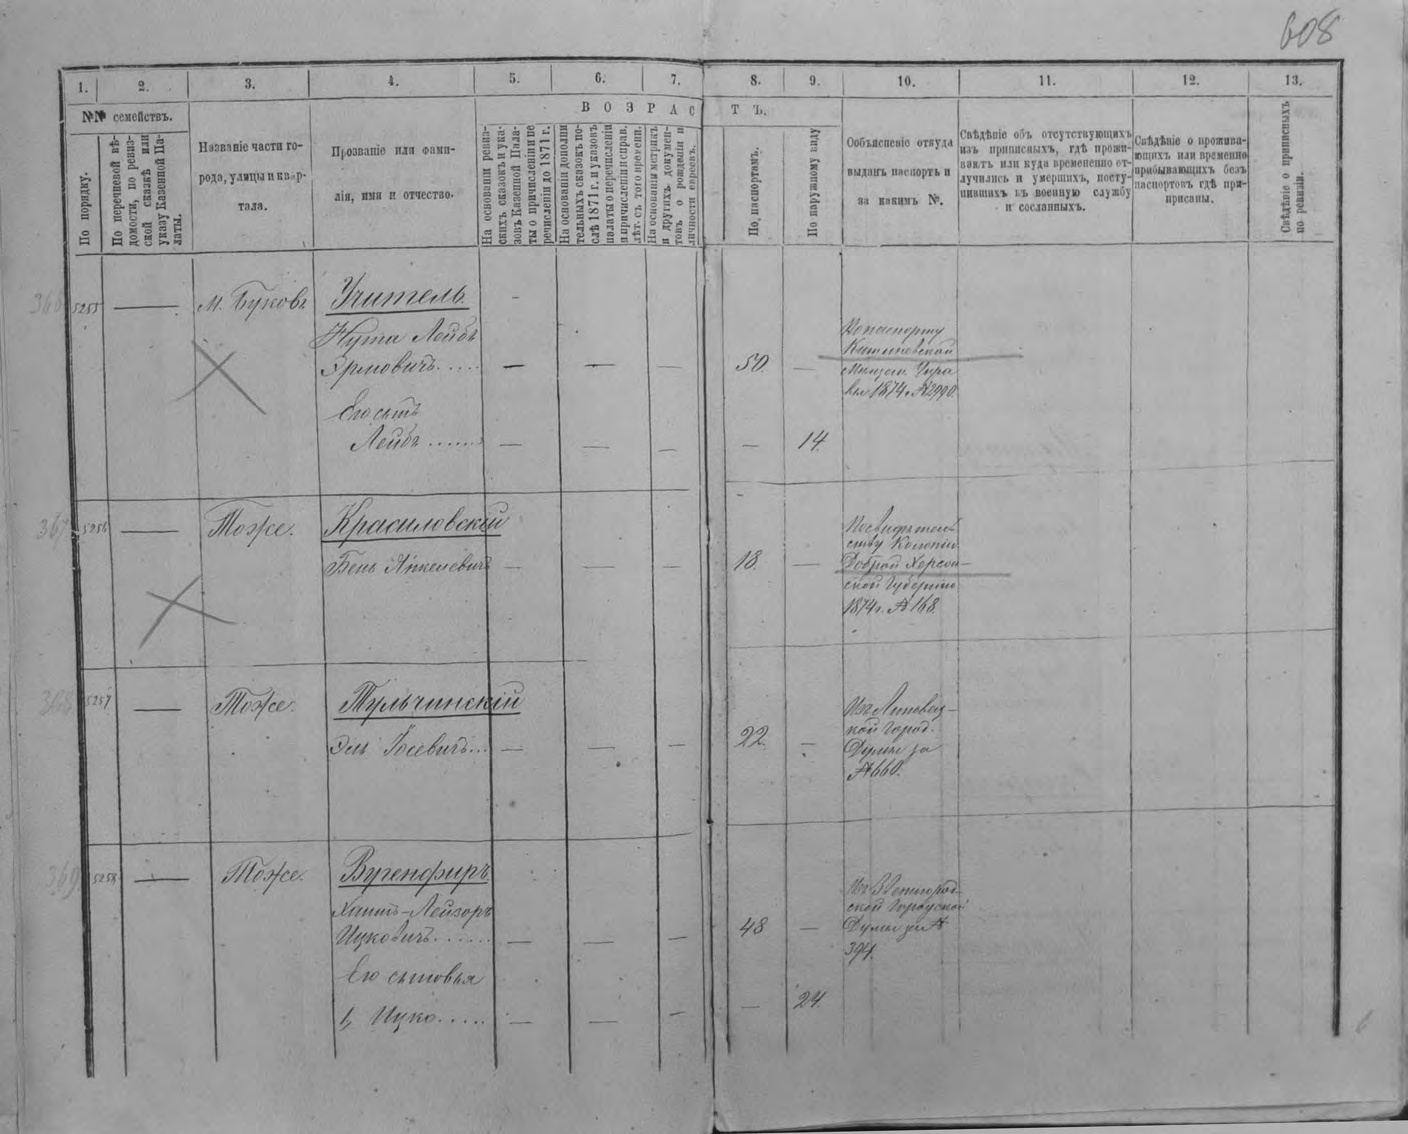 608
1. 2. 3. 4. 5. 6. 7. 8. 9. 10. 11. 12. 13.
№№ семействъ.
По порядку.
По перечневой вѣ-
домости, по ревиз-
ской сказкѣ или
указу Казенной Па-
латы.
Названіе части го-
рода, улицы и квар-
тала.
Прозваніе или фами-
лія, имя и отчество.
ВОЗРАСТЪ.
На основаніи ревиз-
скихъ сказокъ и ука-
зовъ Казенной Пала-
ты о причисленіи и пе
речисленіи до 1871 г.
На основаніи дополни
тельныхъ сказокъ по-
слѣ 1871 г. и указовъ
палаты о перечисленіи
и причисленіи и справ.
лѣт. съ того времени.
На основаніи метрикъ
и другихъ докумен-
товъ о рожденіи и
личности евреевъ.
По паспортамъ.
По наружному виду
Объясненіе откуда
выданъ паспортъ и
за какимъ №.
Свѣдѣніе объ отсутствующихъ
изъ приписныхъ, гдѣ прожи-
ваютъ или куда временно от-
лучились и умершихъ, посту-
пившихъ въ военную службу
и сосланныхъ.
Свѣдѣніе о прожива-
ющихъ или временно
прибывающихъ безъ
паспортовъ гдѣ при-
писаны.
Свѣдѣніе о приписныхъ
по ревизіи.
366 5255 — М. Буковъ Учитель
Нута Лейбъ
Эрмовичъ..... — — — 50. —
По паспорту
Кишиневской
Мещан. Упра
вы 1874 г. № 2990.
Его сынъ
Лейбъ....... — — — — 14.
367 5256 — Тоже. Красиловскій
Бень Янкелевичъ — — — 18. —
По свидѣтель
ству Колоніи
Доброй Херсон—
ской Губерніи
1874 г. № 168.
368 5257 — Тоже. Тульчинскій
Эль Іосевичъ... — — — 22. —
Изъ Липовец—
кой Город.
Думы за
№ 660.
369 5258 — Тоже. Вугенфиръ
Хаимъ-Лейзоръ
Ицковичъ...... — — — 48 —
Изъ Звенигород-
ской Городской
Думы за №
394.
Его сыновья
1, Ицко..... — — — — 24.